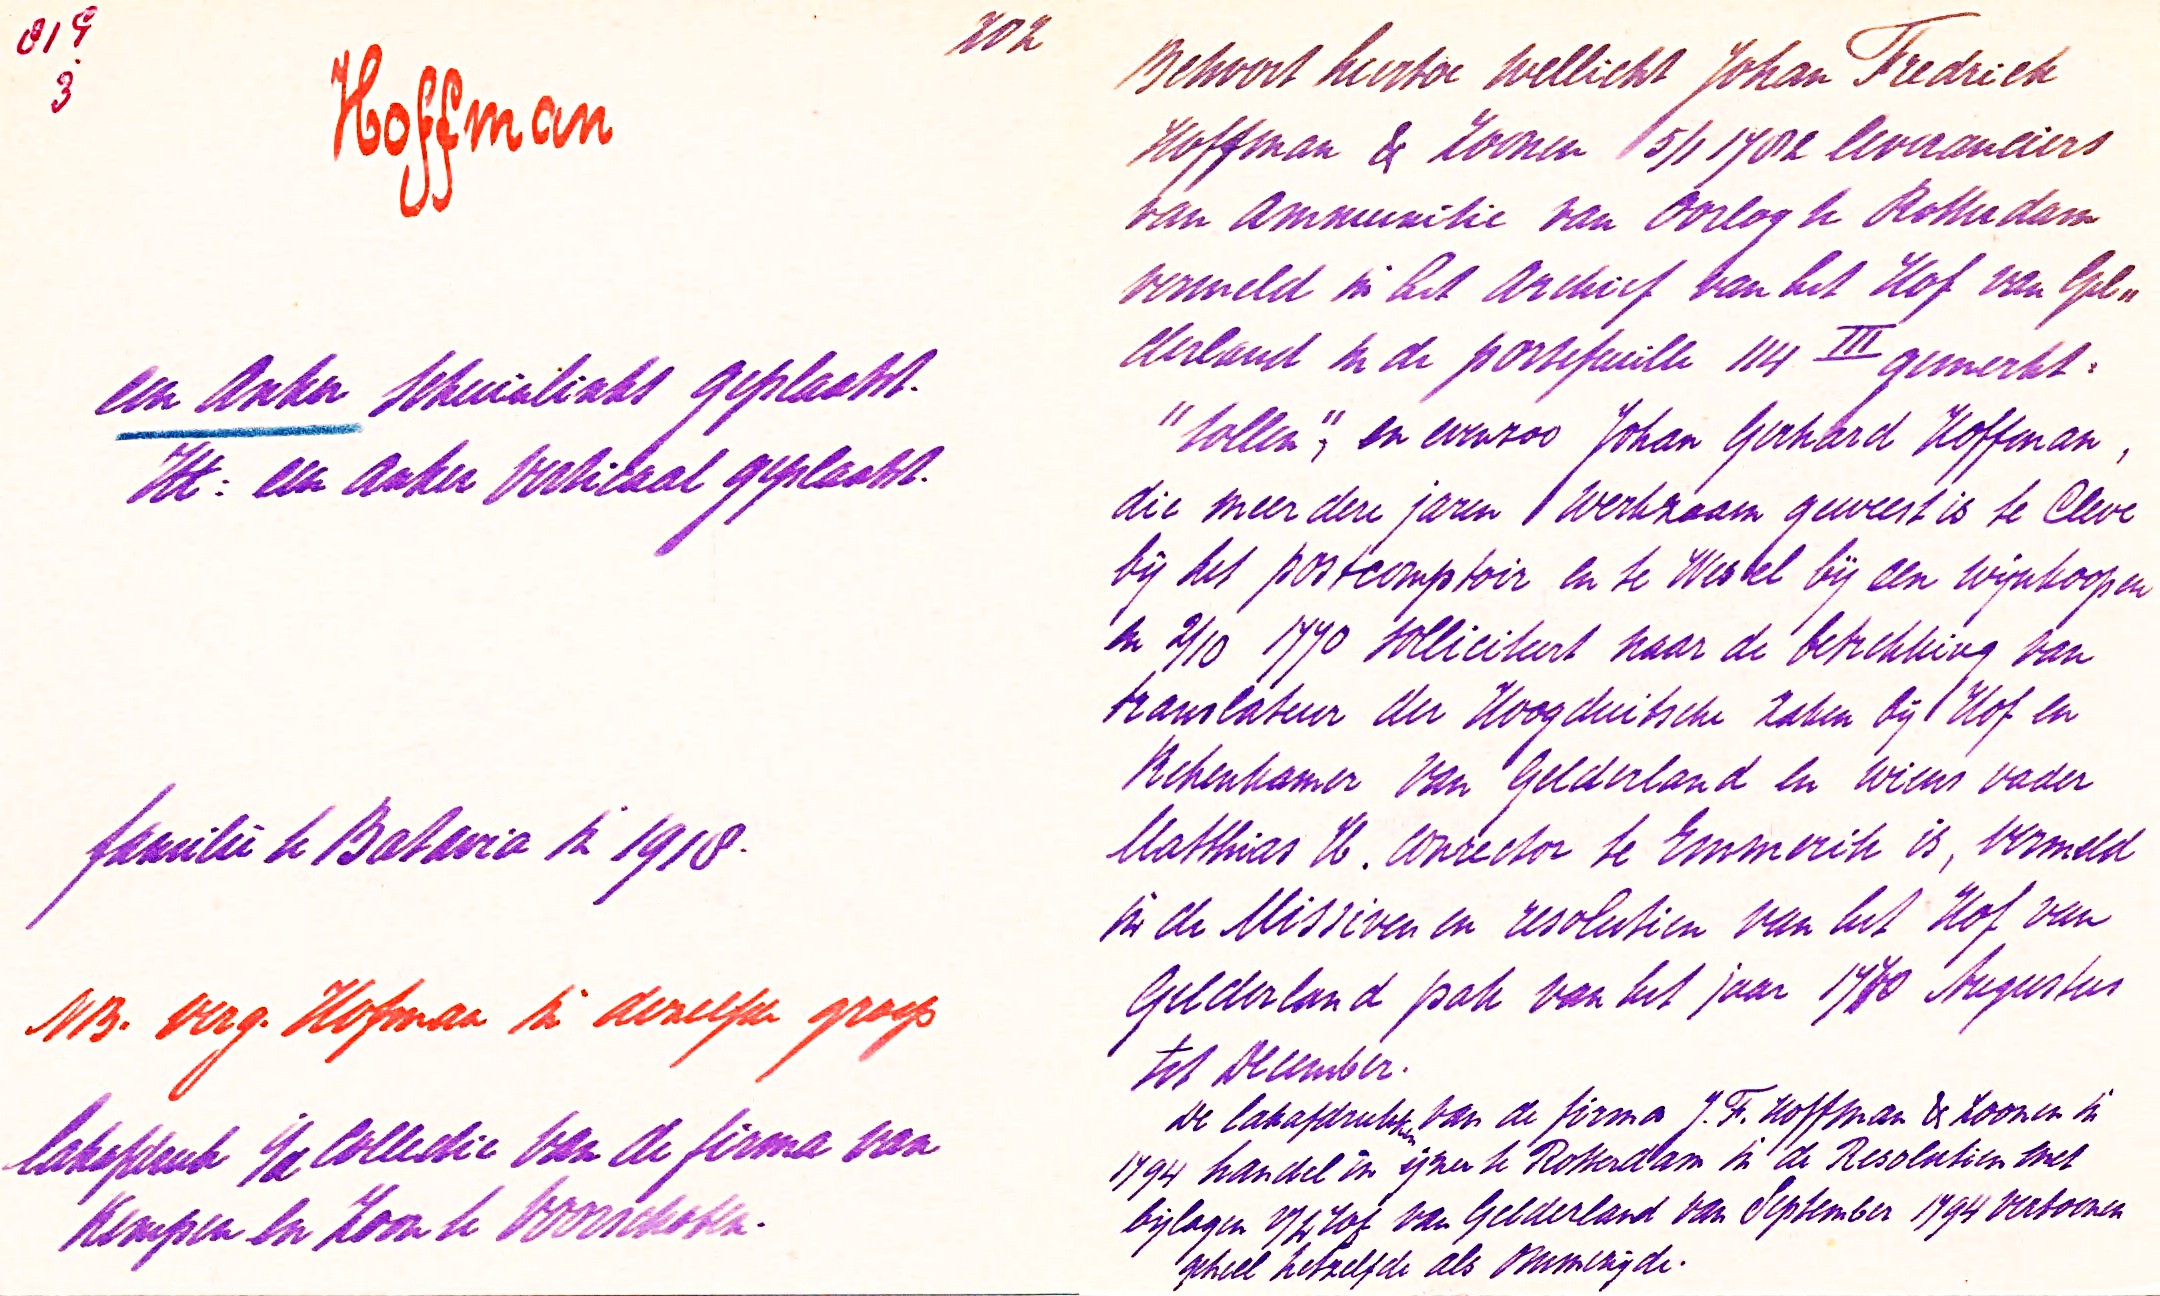 819
3
202
Hoffman
een Anker schuinlinks geplaatst.
Ht: een anker verticaal geplaatst.
familie te Batavia in 1918.
NB. verg. Hofman in dezelfde groep
lakafdruk i/d Collectie van de firma van
Kempen en Zoon te Voorschoten.
Behoort hiertoe wellicht Johan Fredrich
Hoffman & Zoonen 5/1 1782 leveranciers
van Ammunitie van Oorlog te Rotterdam
vermeld in het Archief van het Hof van Gel„
derland in de portefeuille 114 III gemerkt:
"Tollen", en evenzoo Johan Gerhard Hoffman,
die meerdere jaren werkzaam geweest is te Cleve
bij het postcomptoir en te Wesel bij een wijnkooper
en 2/10 1770 solliciteert naar de betrekking van
translateur der Hoogduitsche zaken bij Hof en
Rekenkamer van Gelderland en wiens vader
Matthias H. Conrector te Emmerik is, vermeld
in de Missiven en resolutien van het Hof van
Gelderland pak van het jaar 1770 Augustus
tot December.
De lakafdrukken van de firma J. F. Hoffman & Zoonen in
1794 handel in ijzer te Rotterdam in de Resolutien met
bijlagen v/h Hof van Gelderland van September 1794 vertoonen
geheel hetzelfde als ommezijde.